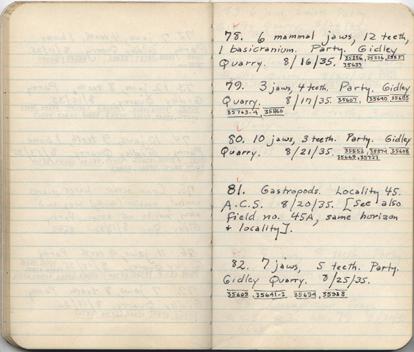 78. 6 mammal jaws, 12 teeth,
1 basicranium. Party. Gidley
Quarry. 8/16/35.
79. 3 jaws, 4 teeth. Party. Gidley
Quarry. 8/17/35.
80. 10 jaws, 3 teeth. Party. Gidley
Quarry. 8/21/35.
81. Gastropods. Locality 45.
A.C.S. 8/20/35. [See also
field no. 45A, same horizon
& locality].
82. 7 jaws, 5 teeth. Party.
Gidley Quarry. 8/25/35.